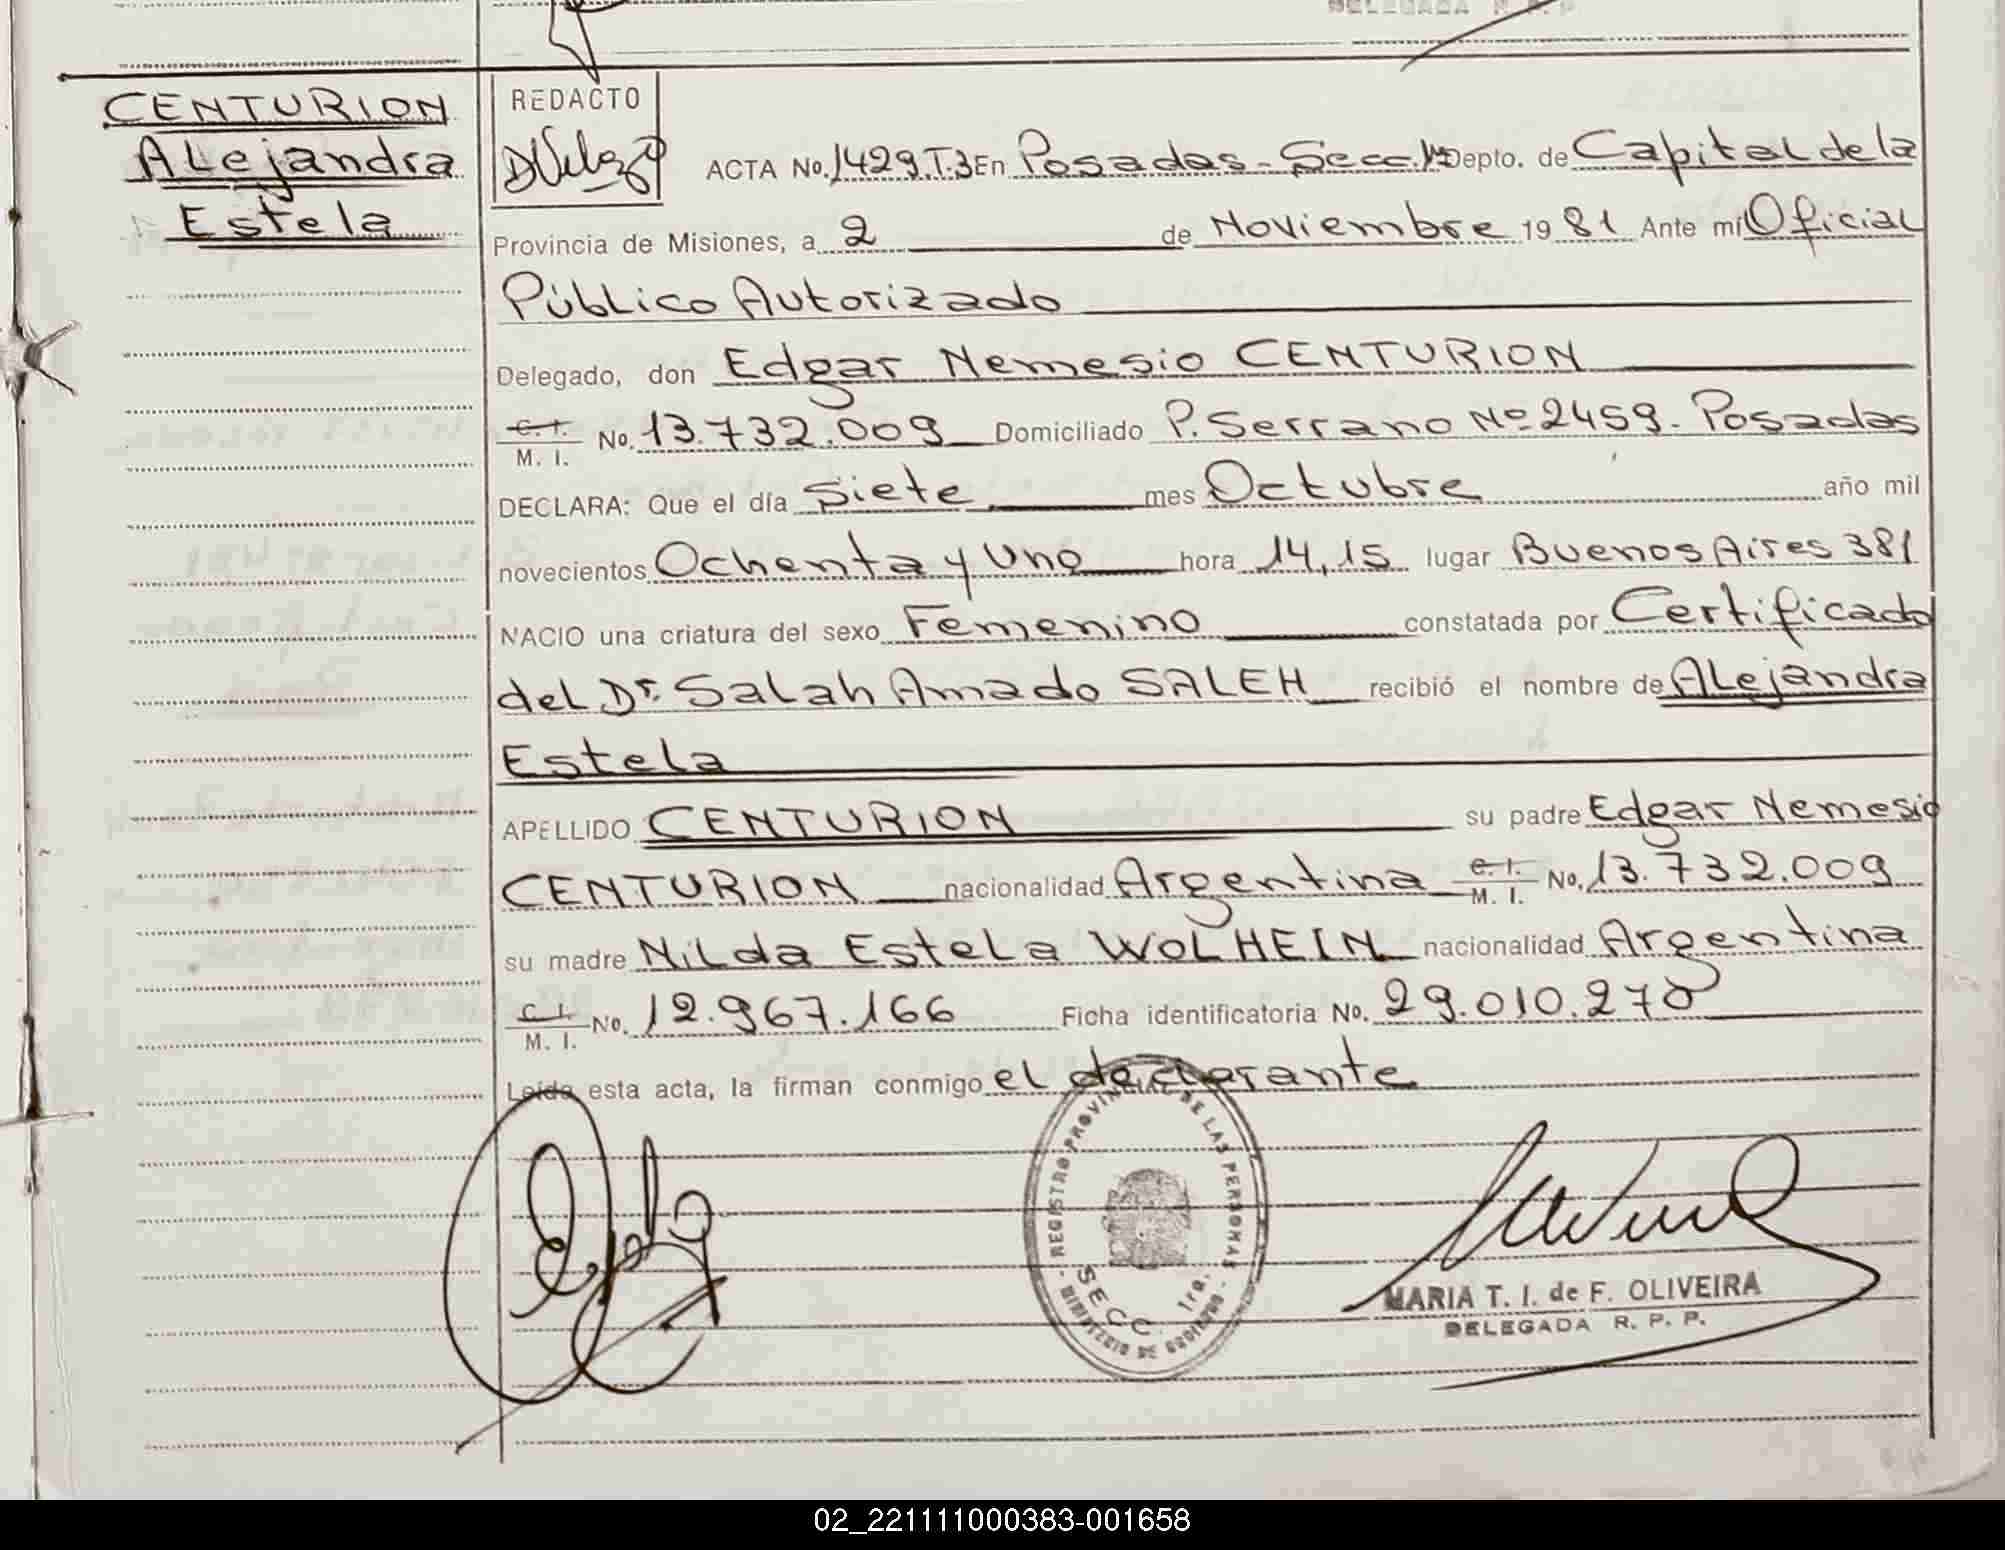 DELEGADA R. P. P.
CENTURION
ALejandra
Estela
REDACTO
ACTA No. 1429 T.3 En Posadas - Secc. 1ª Depto. de Capital de la
Provincia de Misiones, a 2 de Noviembre 1981 Ante mí Oficial
Público Autorizado
Delegado, don Edgar Nemesio CENTURION
C. I.
M. I. No. 13.732.009 Domiciliado P. Serrano Nº 2459 - Posadas
DECLARA: Que el día siete mes Octubre año mil
novecientos Ochenta y Uno hora 14,15 lugar Buenos Aires 381
NACIO una criatura del sexo Femenino constatada por Certificado
del Dr. Salah Amado SALEH recibió el nombre de ALejandra
Estela
APELLIDO CENTURION su padre Edgar Nemesio
CENTURION nacionalidad Argentina C. I. M. I. No. 13.732.009
su madre Nilda Estela WOLHEIN nacionalidad Argentina
C. I.
M. I. No. 12.967.166 Ficha identificatoria No. 29.010.278
Leída esta acta, la firman conmigo el declarante
REGISTRO PROVINCIAL DE LAS PERSONAS
SECC. 1ra.
MINISTERIO DE GOBIERNO
MARIA T. I. de F. OLIVEIRA
DELEGADA R. P. P.
02_221111000383-001658